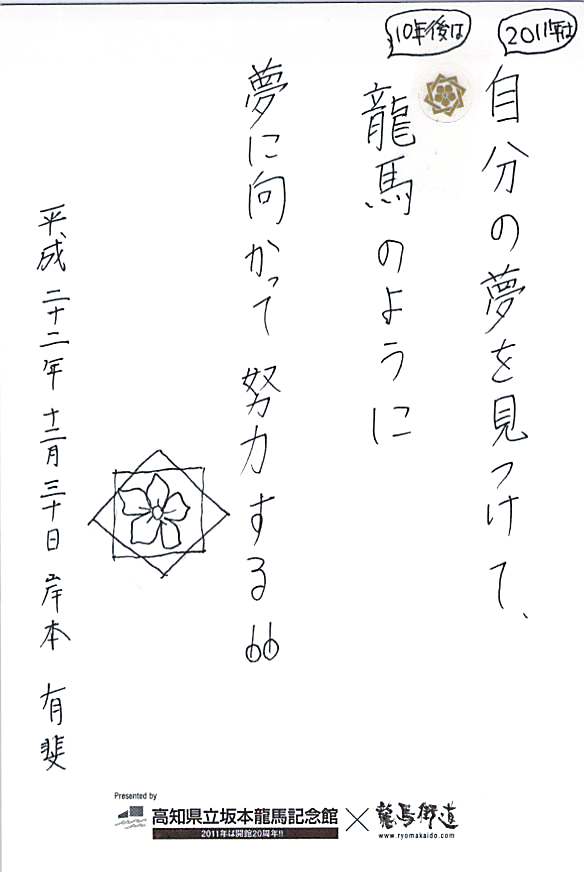 2011年は
自分の夢を見つけて、
10年後は
龍馬のように
夢に向かって努力する
平成二十二年 十二月三十日 岸本 有斐
Presented by
高知県立坂本龍馬記念館 × 龍馬街道
2011年は開館20周年!!
www.ryomakaido.com